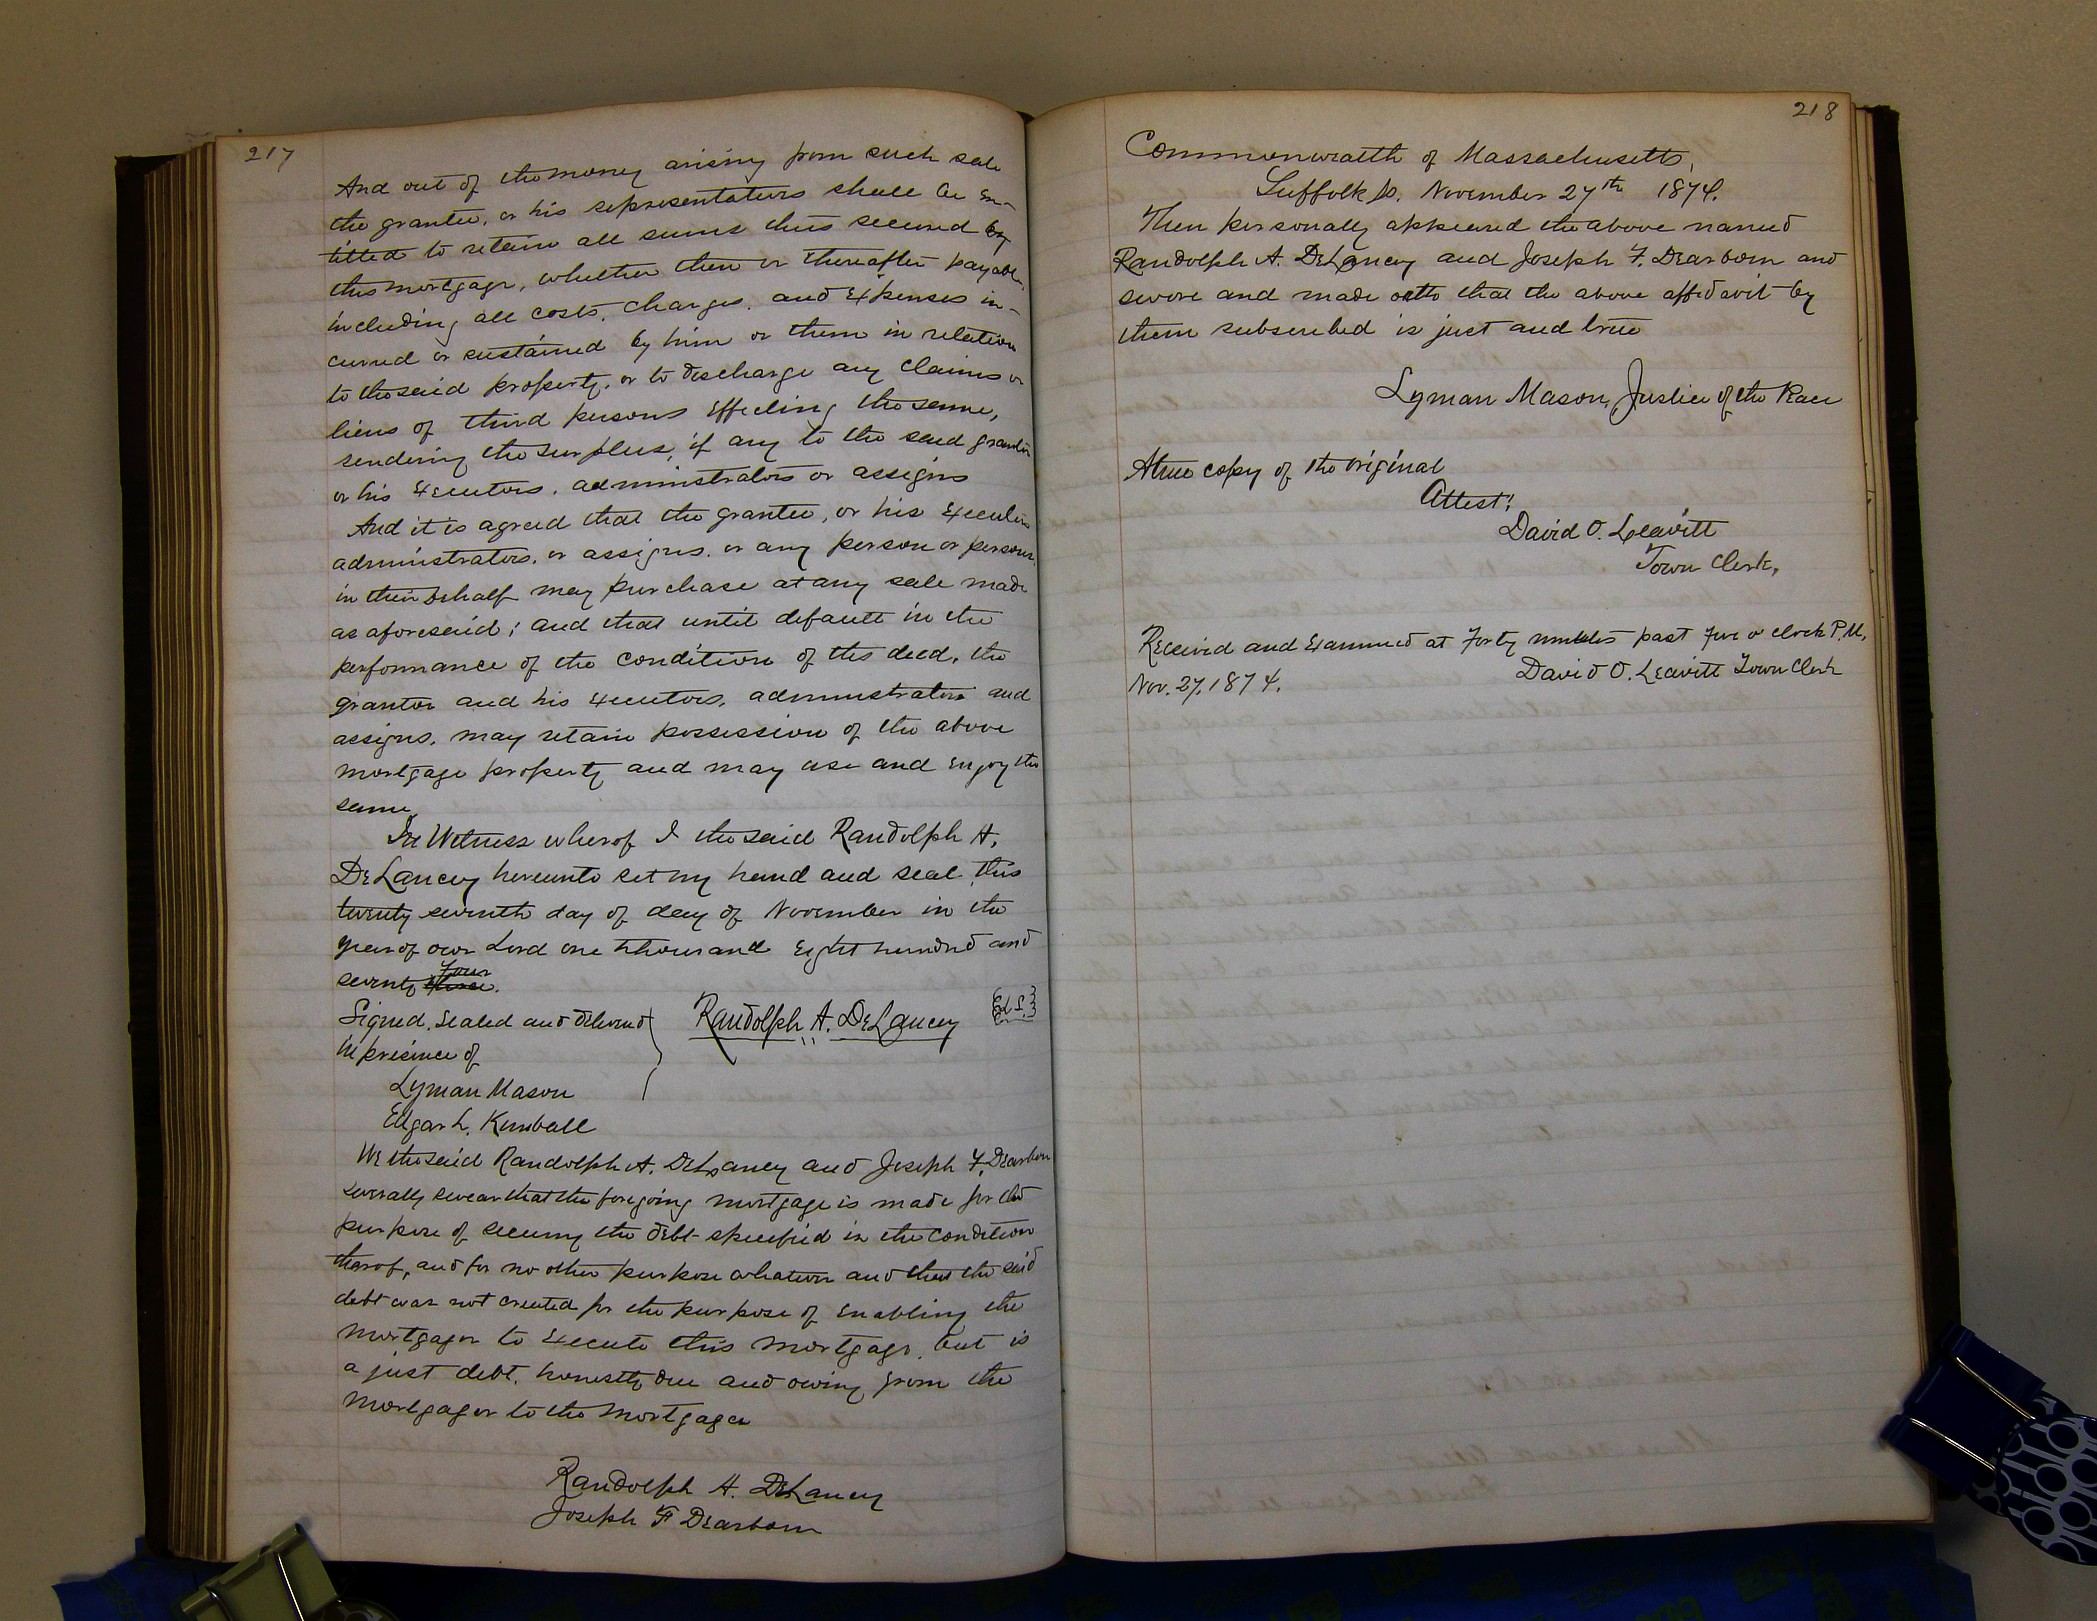 217
And out of the money arising from such sale
the grantee, or his representatives shall be en-
titled to retain all sums thus secured by
this mortgage, whether then or thereafter payable,
including all costs, charges, and Expenses in-
curred or sustained by him or them in relation
to the said property, or to discharge any claims or
liens of third persons Effecting the same,
rendering the surplus, if any to the said grantor
or his Executors, administrators or assigns
And it is agreed that the grantee, or his Executors
administrators, or assigns, or any person or persons
in their behalf may purchase at any sale made
as aforesaid; and that until default in the
performance of the condition of this deed, the
grantor and his Executors, administrators and
assigns, may retain possession of the above
mortgage property and may use and Enjoy the
same,
In Witness wherof I the said Randolph A.
DeLancey hereunto set my hand and seal this
twenty seventh day of day of November in the
year of our Lord one thousand Eight hundred and
seventy four.
Signed, Sealed and delivered Randolph A. DeLancey L.S.
in presence of
Lyman Mason
Edgar L. Kimball
We the said Randolph A. DeLancey and Joseph F. Dearborn
severally swear that the foregoing mortgage is made for the
purpose of securing the debt specified in the condition
therof, and for no other purpose whatever and that the said
debt was not created for the purpose of Enabling the
Mortgagor to Execute this Mortgage, but is
a just debt, honestly due and owing from the
Mortgagor to the Mortgagee
Randolph A. DeLancey
Joseph F Dearborn
218
Commonwealth of Massachusetts,
Suffolk ss. November 27th 1874.
Then personally appeared the above named
Randolph A. DeLancey and Joseph F. Dearborn and
swore and made oath that the above affidavit by
them subscribed is just and true
Lyman Mason, Justice of the Peace
A true copy of the original
Attest;
David O. Leavitt
Town Clerk,
Received and Examined at Forty minutes past five o clock P.M,
Nov. 27, 1874. David O. Leavitt Town Clerk